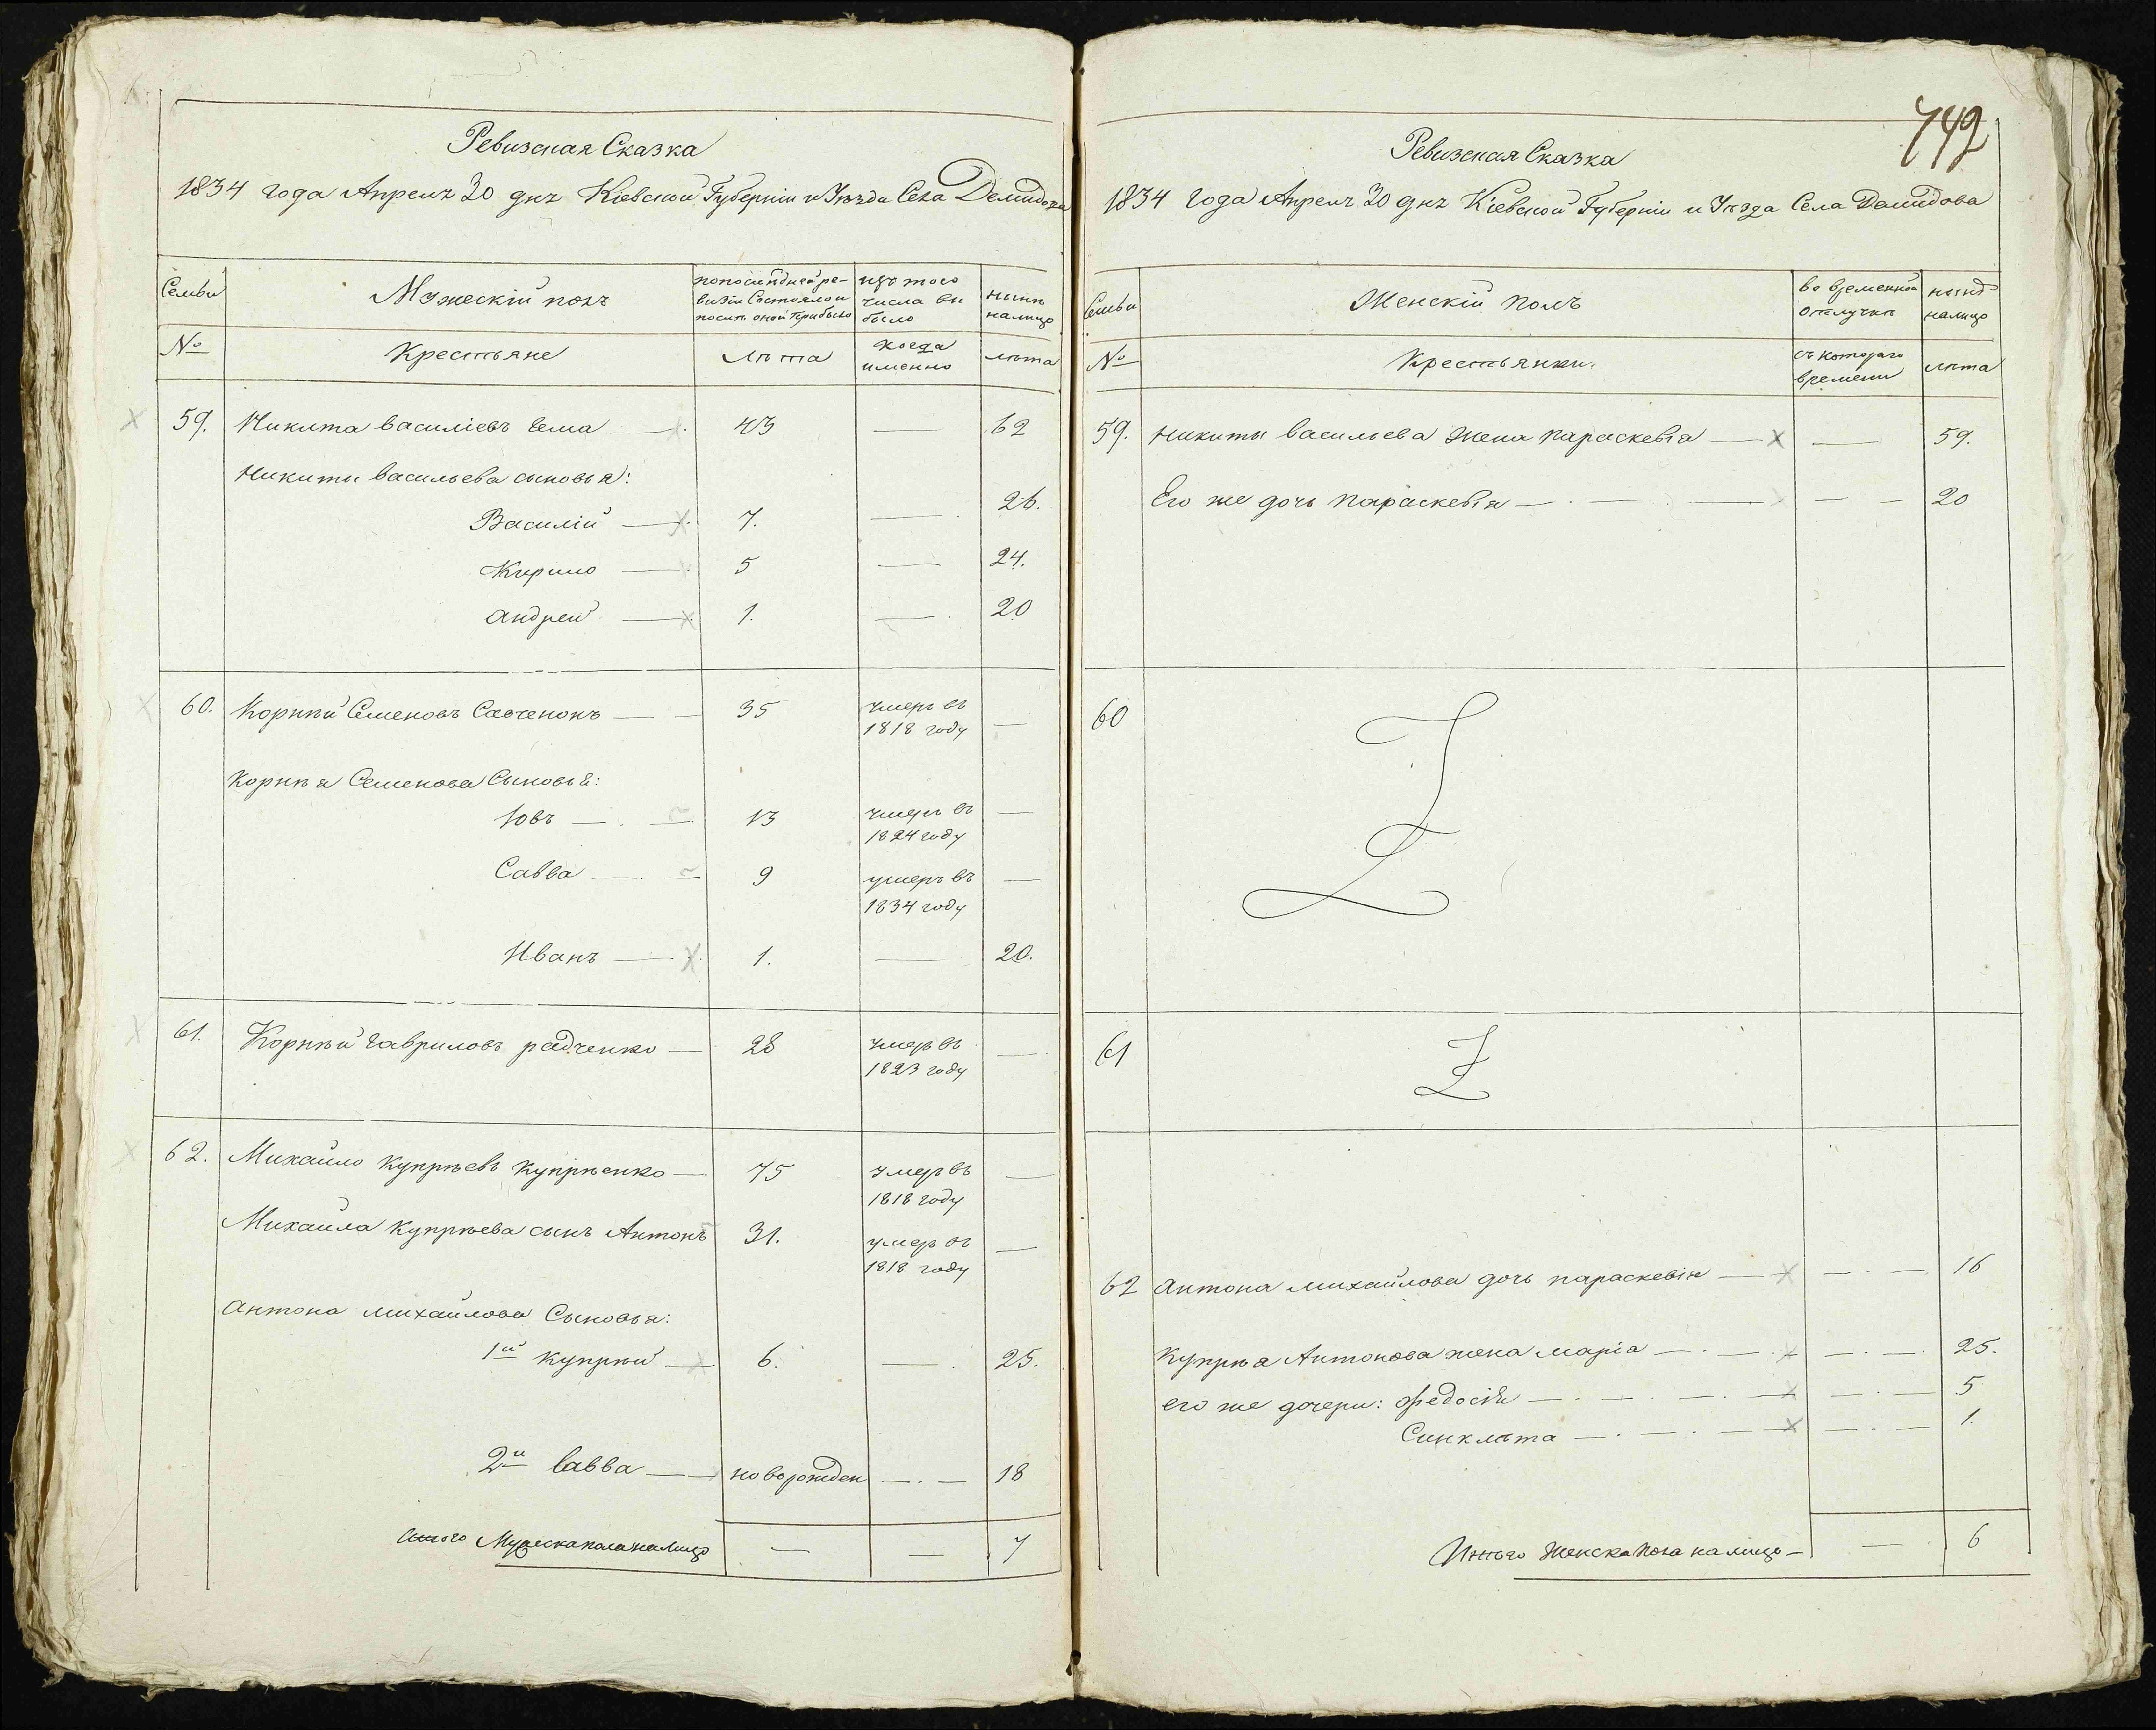 Ревизская Сказка
1834 года Апреля 30 дня Кіевской Губерніи и Уѣзда Села Демидова
Семьи
Мужескій полъ
по последней ре-
визіи Состояло и
послѣ оной прибыло
изъ того
числа вы
было
нынѣ
налицо
№
Крестьяне
лѣта
когда
именно
лѣта
59. Никита Василіевъ 43 — 62
Никиты Васильева сыновья:
Василій — 7. — 26.
Кирило — 5 — 24.
Андрей — 1. — 20
60. Корнѣй Семеновъ Савченокъ — 35 умеръ въ —
1818 году
Корнѣя Семенова Сыновья:
Іовъ — 13 умеръ въ —
1824 году
Савва — 9 умеръ въ —
1834 году
Иванъ — 1. — 20.
61. Корнѣй Гавриловъ Радченко — 28 умеръ въ —
1823 году
62. Михайло Купрѣевъ Купрѣенко — 75 умеръ въ —
1818 году
Михайла Купрѣева сынъ Антонъ 31. умеръ въ —
1818 году
Антона Михайлова Сыновья:
1й Купрѣй — 6. — 25.
2й Савва — новорожден — 18
Итого Мужеска пола налицо — — 7
742
Ревизская Сказка
1834 года Апреля 30 дня Кіевской Губерніи и Уѣзда Села Демидова
Семьи
Женскій полъ
во временной
отлучкѣ
нынѣ
налицо
№
Крестьянки.
съ котораго
времени
лѣта
59. Никиты Васильева жена Параскевіа — — 59.
Его же дочь Параскевія — — 20
60
61
62 Антона Михайлова дочь Параскевія — — 16
Купрѣя Антонова жена Маріа — — 25.
его же дочери: Федосія — — 5
Синклѣта — — 1.
Итого Женска пола налицо — — 6